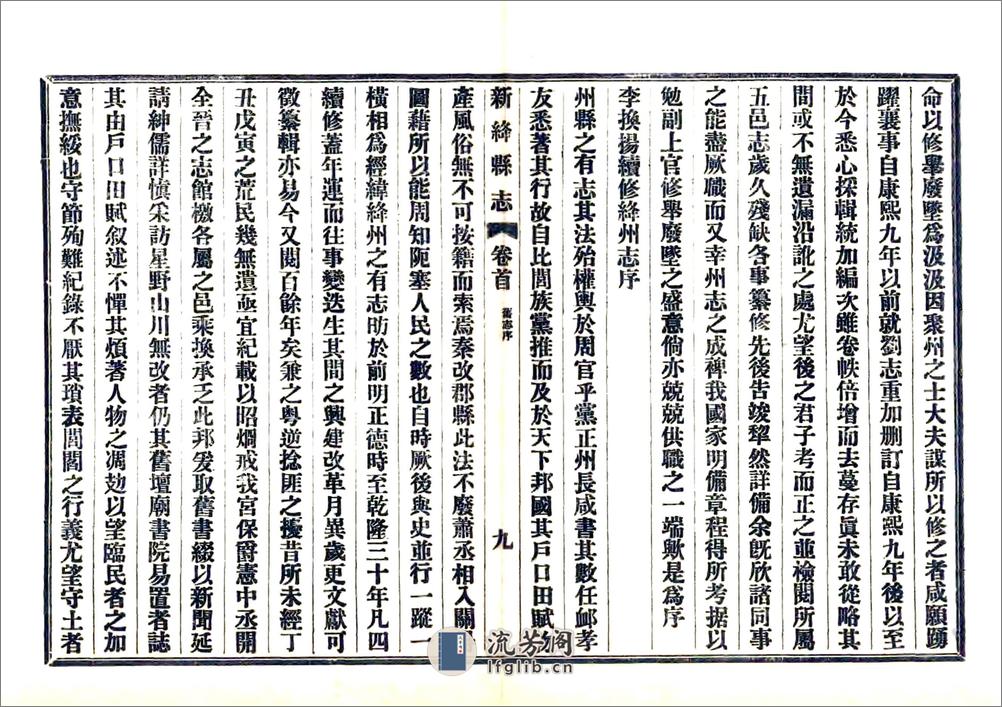 命以修舉廢墜爲汲汲因聚州之士大夫謀所以修之者咸願踴
躍襄事自康熙九年以前就劉志重加刪訂自康熙九年後以至
於今悉心採輯統加編次雖卷帙倍增而去蔓存眞未敢從略其
間或不無遺漏沿訛之處尤望後之君子考而正之並檢閱所屬
五邑志歲久殘缺各事纂修先後告竣犂然詳備余旣欣諸同事
之能盡厥職而又幸州志之成稗我國家明備章程得所考据以
勉副上官修舉廢墜之盛意倘亦兢兢供職之一端歟是爲序
李換揚續修絳州志序
州縣之有志其法殆權輿於周官乎黨正州長咸書其數任衈孝
友悉著其行故自比閭族黨推而及於天下邦國其戶口田賦物
新絳縣志 卷首 舊志序 九
產風俗無不可按籍而索焉秦改郡縣此法不廢蕭丞相入關收
圖藉所以能周知阨塞人民之數也自時厥後與史並行一蹤一
橫相爲經緯絳州之有志昉於前明正德時至乾隆三十年凡四
續修蓋年運而往事變迭生其間之興建改革月異歲更文獻可
徵纂輯亦易今又閱百餘年矣兼之粤逆捻匪之擾昔所未經丁
丑戊寅之荒民幾無遺亟宜紀載以昭烱戒我宮保爵憲中丞開
全晉之志館檄各屬之邑乘換承乏此邦爰取舊書綴以新聞延
請紳儒詳愼采訪星野山川無改者仍其舊壇廟書院易置者誌
其由戶口田賦叙述不憚其煩著人物之凋攰以望臨民者之加
意撫綏也守節殉難紀錄不厭其瑣表閭閻之行義尤望守土者
流芳閣
lfglib.cn